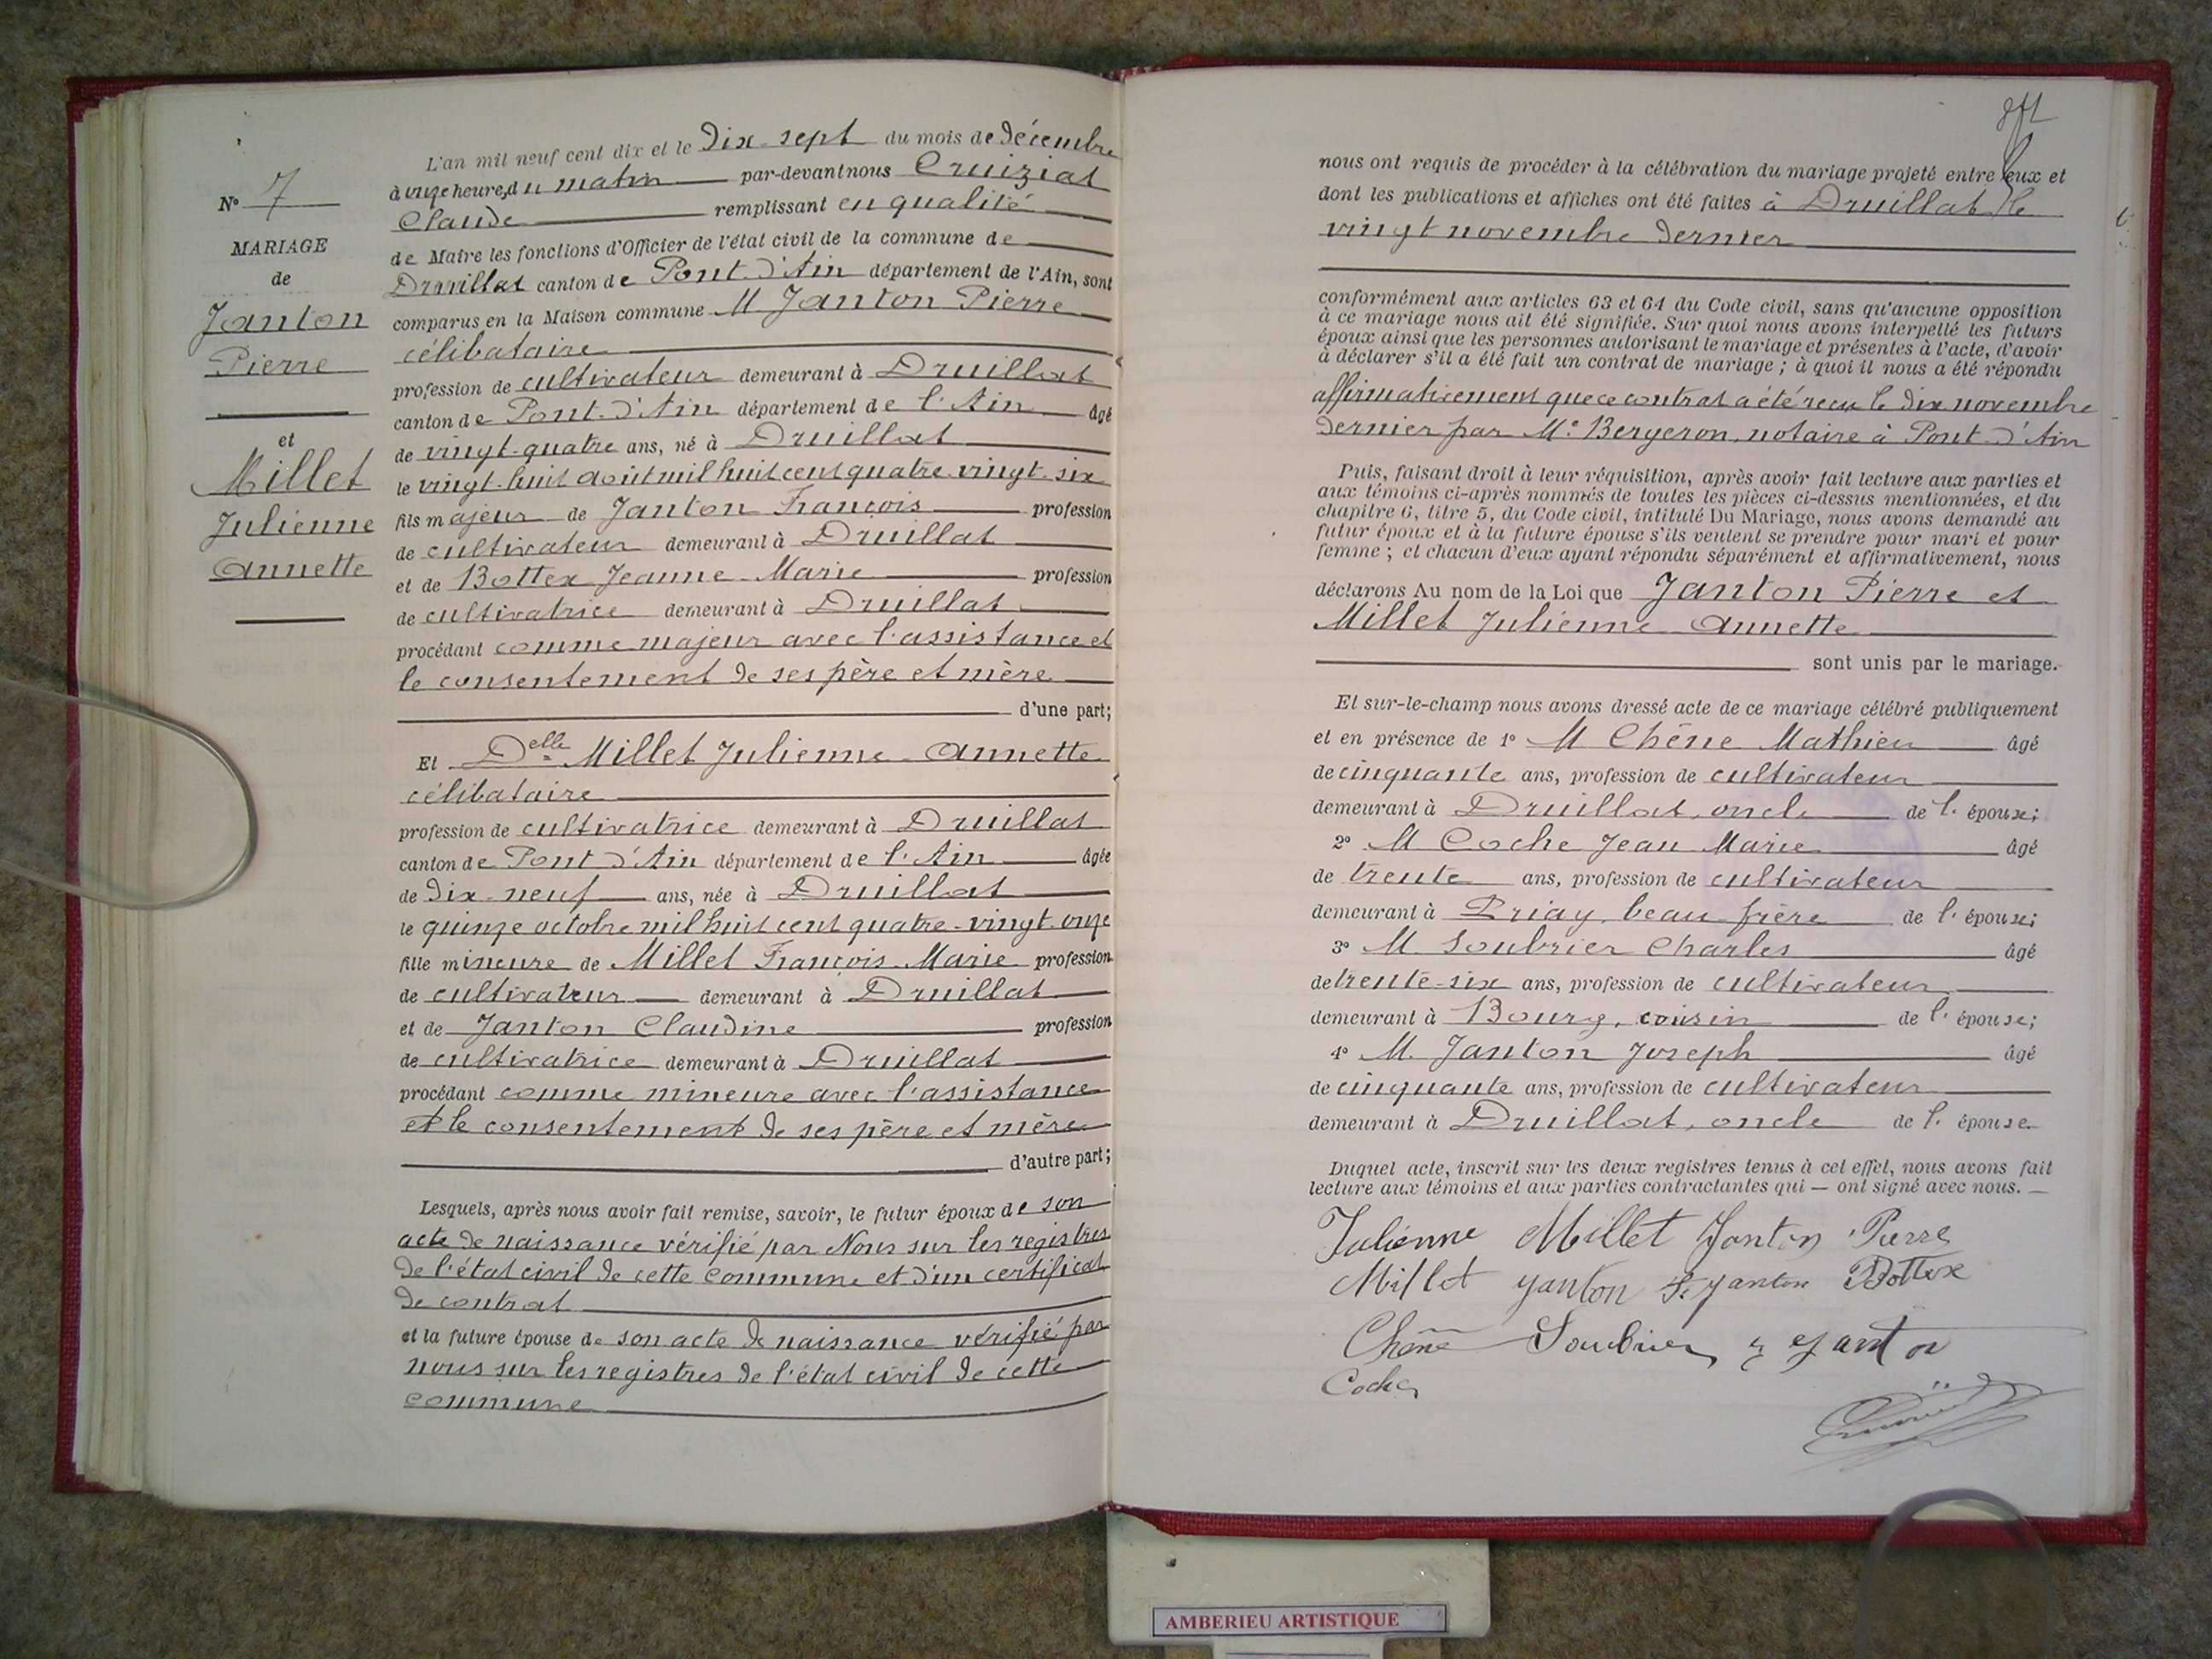 N° 7
MARIAGE
de
Janton
Pierre
et
Millet
Julienne
Annette
L'an mil neuf cent dix et le dix-sept du mois de décembre
à onze heures du matin par-devant nous Cruiziat
Claude remplissant en qualité
de Maire les fonctions d'Officier de l'état civil de la commune de
Druillat canton de Pont-d'Ain département de l'Ain, sont
comparus en la Maison commune M Janton Pierre
célibataire
profession de cultivateur demeurant à Druillat
canton de Pont-d'Ain département de l'Ain âgé
de vingt-quatre ans, né à Druillat
le vingt-huit août mil huit cent quatre-vingt-six
fils majeur de Janton François profession
de cultivateur demeurant à Druillat
et de Bottex Jeanne-Marie profession
de cultivatrice demeurant à Druillat
procédant comme majeur avec l'assistance et
le consentement de ses père et mère
d'une part;
Et Delle Millet Julienne-Annette
célibataire
profession de cultivatrice demeurant à Druillat
canton de Pont d'Ain département de l'Ain âgée
de dix-neuf ans, née à Druillat
le quinze octobre mil huit cent quatre-vingt-onze
fille mineure de Millet François-Marie profession
de cultivateur demeurant à Druillat
et de Janton Claudine profession
de cultivatrice demeurant à Druillat
procédant comme mineure avec l'assistance
et le consentement de ses père et mère
d'autre part;
Lesquels, après nous avoir fait remise, savoir, le futur époux de son
acte de naissance vérifié par Nous sur les registres
de l'état civil de cette commune et d'un certificat
de contrat
et la future épouse de son acte de naissance vérifié par
nous sur les registres de l'état civil de cette
commune
nous ont requis de procéder à la célébration du mariage projeté entre eux et
dont les publications et affiches ont été faites à Druillat le
vingt novembre dernier
conformément aux articles 63 et 64 du Code civil, sans qu'aucune opposition
à ce mariage nous ait été signifiée. Sur quoi nous avons interpellé les futurs
époux ainsi que les personnes autorisant le mariage et présentes à l'acte, d'avoir
à déclarer s'il a été fait un contrat de mariage ; à quoi il nous a été répondu
affirmativement que ce contrat a été reçu le dix novembre
dernier par Me Bergeron, notaire à Pont-d'Ain
Puis, faisant droit à leur réquisition, après avoir fait lecture aux parties et
aux témoins ci-après nommés de toutes les pièces ci-dessus mentionnées, et du
chapitre 6, titre 5, du Code civil, intitulé Du Mariage, nous avons demandé au
futur époux et à la future épouse s'ils veulent se prendre pour mari et pour
femme ; et chacun d'eux ayant répondu séparément et affirmativement, nous
déclarons Au nom de la Loi que Janton Pierre et
Millet Julienne-Annette
sont unis par le mariage.
Et sur-le-champ nous avons dressé acte de ce mariage célébré publiquement
et en présence de 1° M Chêne Mathieu âgé
de cinquante ans, profession de cultivateur
demeurant à Druillat, oncle de l'épouse;
2° M Coche Jean Marie âgé
de trente ans, profession de cultivateur
demeurant à Priay, beau-frère de l'épouse;
3° M Soubrier Charles âgé
de trente-six ans, profession de cultivateur
demeurant à Bourg, cousin de l'épouse;
4° M. Janton Joseph âgé
de cinquante ans, profession de cultivateur
demeurant à Druillat, oncle de l'épouse.
Duquel acte, inscrit sur les deux registres tenus à cet effet, nous avons fait
lecture aux témoins et aux parties contractantes qui — ont signé avec nous. —
Julienne Millet Janton Pierre
Millet Janton Janton Bottex
Chêne Soubrier Janton
Coche
AMBERIEU ARTISTIQUE